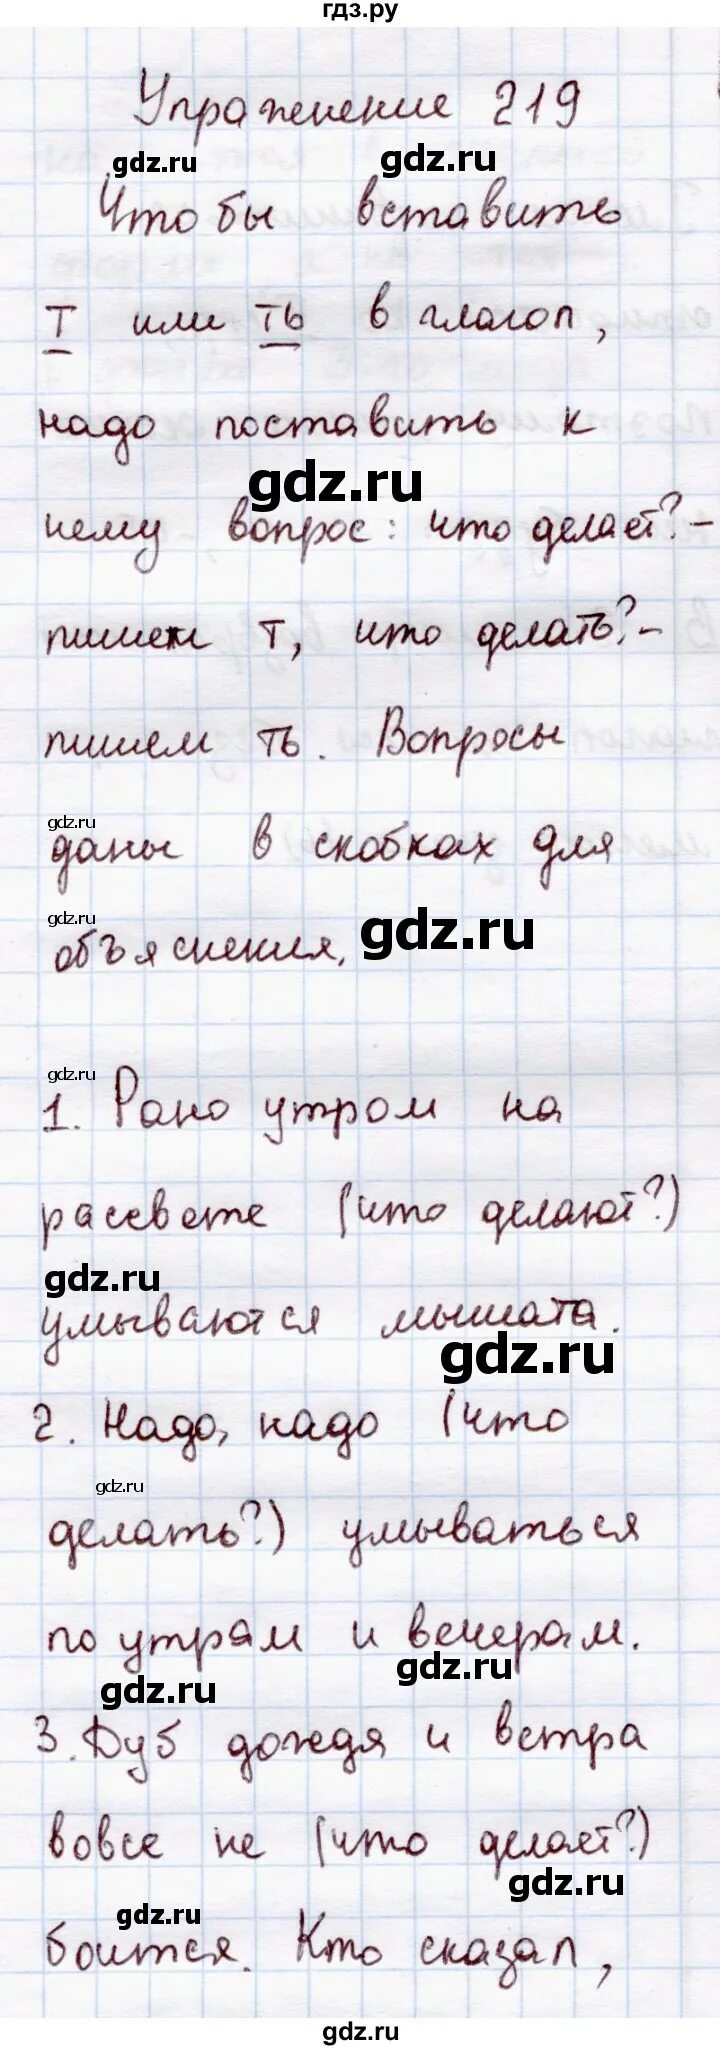 гдз.ру
Упражнение 219
gdz.ru
gdz.ru
Чтобы вставить
т или ть в глагол,
надо поставить к
gdz.ru
нему вопрос: что делает?-
пишем т, что делать?-
пишем ть. Вопросы
gdz.ru
даны в скобках для
gdz.ru
gdz.ru
объяснения.
gdz.ru
1. Рано утром на
рассвете (что делают?)
gdz.ru
умываются мышата.
gdz.ru
2. Надо, надо (что
gdz.ru
делать?) умываться
по утрам и вечерам.
gdz.ru
gdz.ru
3. Дуб дождя и ветра
вовсе не (что делает?)
gdz.ru
gdz.ru
боится. Кто сказал,
gdz.ru